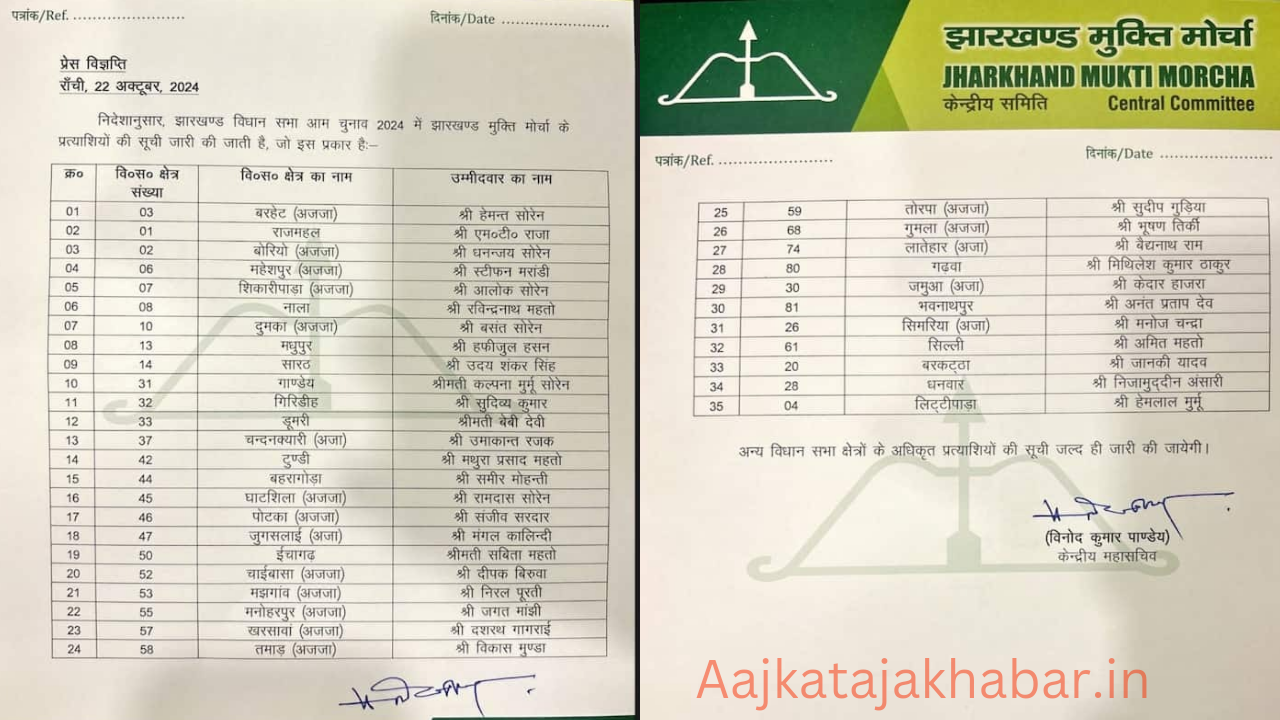 पत्रांक/Ref. ........................ दिनांक/Date ........................
प्रेस विज्ञप्ति
राँची, 22 अक्टूबर, 2024
निदेशानुसार, झारखण्ड विधान सभा आम चुनाव 2024 में झारखण्ड मुक्ति मोर्चा के
प्रत्याशियों की सूची जारी की जाती है, जो इस प्रकार है:–
क्र० वि०स० क्षेत्र संख्या वि०स० क्षेत्र का नाम उम्मीदवार का नाम
01 03 बरहेट (अजजा) श्री हेमन्त सोरेन
02 01 राजमहल श्री एम०टी० राजा
03 02 बोरियो (अजजा) श्री धनन्जय सोरेन
04 06 महेशपुर (अजजा) श्री स्टीफन मरांडी
05 07 शिकारीपाड़ा (अजजा) श्री आलोक सोरेन
06 08 नाला श्री रविन्द्रनाथ महतो
07 10 दुमका (अजजा) श्री बसंत सोरेन
08 13 मधुपुर श्री हफीजुल हसन
09 14 सारठ श्री उदय शंकर सिंह
10 31 गाण्डेय श्रीमती कल्पना मुर्मू सोरेन
11 32 गिरिडीह श्री सुदिव्य कुमार
12 33 डूमरी श्रीमती बेबी देवी
13 37 चन्दनक्यारी (अजा) श्री उमाकान्त रजक
14 42 टुण्डी श्री मथुरा प्रसाद महतो
15 44 बहरागोड़ा श्री समीर मोहन्ती
16 45 घाटशिला (अजजा) श्री रामदास सोरेन
17 46 पोटका (अजजा) श्री संजीव सरदार
18 47 जुगसलाई (अजा) श्री मंगल कालिन्दी
19 50 ईचागढ़ श्रीमती सबिता महतो
20 52 चाईबासा (अजजा) श्री दीपक बिरुवा
21 53 मझगांव (अजजा) श्री निरल पूरती
22 55 मनोहरपुर (अजजा) श्री जगत मांझी
23 57 खरसावां (अजजा) श्री दशरथ गागराई
24 58 तमाड़ (अजजा) श्री विकास मुण्डा
झारखण्ड मुक्ति मोर्चा
JHARKHAND MUKTI MORCHA
केन्द्रीय समिति Central Committee
पत्रांक/Ref. ........................ दिनांक/Date ........................
25 59 तोरपा (अजजा) श्री सुदीप गुडिया
26 68 गुमला (अजजा) श्री भूषण तिर्की
27 74 लातेहार (अजा) श्री बैद्यनाथ राम
28 80 गढ़वा श्री मिथिलेश कुमार ठाकुर
29 30 जमुआ (अजा) श्री केदार हाजरा
30 81 भवनाथपुर श्री अनंत प्रताप देव
31 26 सिमरिया (अजा) श्री मनोज चन्द्रा
32 61 सिल्ली श्री अमित महतो
33 20 बरकट्ठा श्री जानकी यादव
34 28 धनवार श्री निजामुद्दीन अंसारी
35 04 लिट्टीपाड़ा श्री हेमलाल मुर्मू
अन्य विधान सभा क्षेत्रों के अधिकृत प्रत्याशियों की सूची जल्द ही जारी की जायेगी।
(विनोद कुमार पाण्डेय)
केन्द्रीय महासचिव
Aajkatajakhabar.in